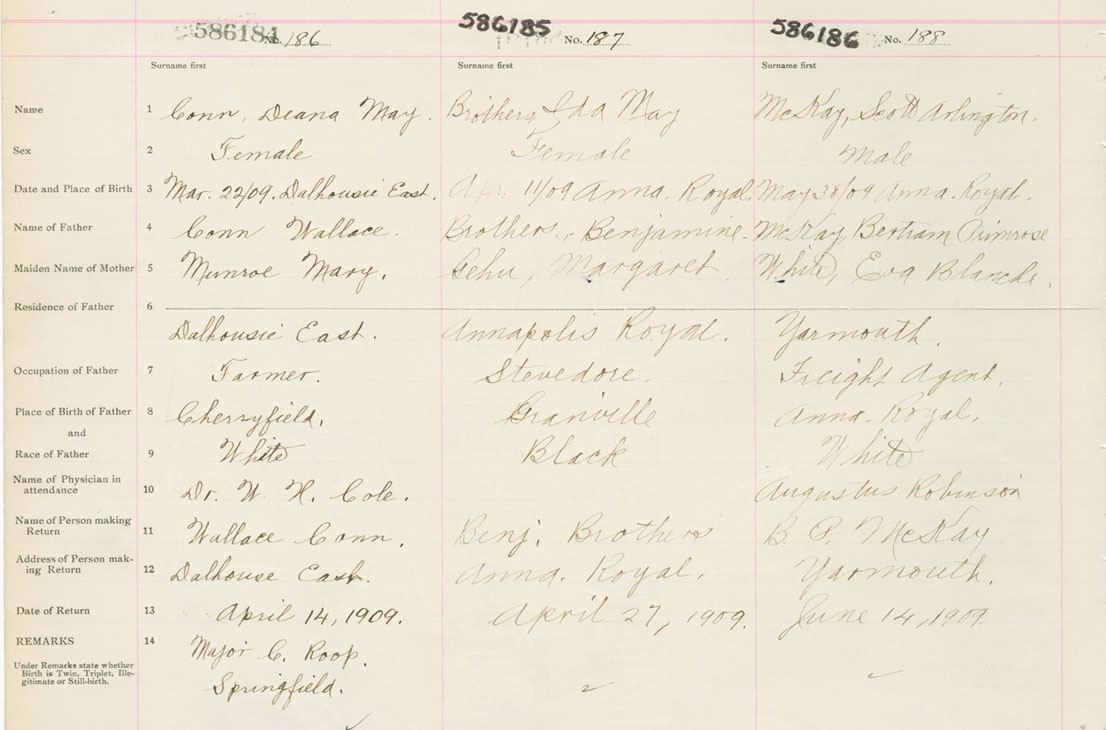 586184 No. 186 586185 No. 187 586186 No. 188
Surname first Surname first Surname first
Name 1 Conn, Deana May. Brothers, Ida May McKay, Scott Arlington.
Sex 2 Female Female Male
Date and Place of Birth 3 Mar. 22/09. Dalhousie East. Apr. 11/09 Anna. Royal. May 30/09 Anna. Royal.
Name of Father 4 Conn Wallace. Brothers, Benjamine. McKay, Bertram Primrose
Maiden Name of Mother 5 Munroe Mary. Margaret White, Eva Blanche.
Residence of Father 6
Dalhousie East. Annapolis Royal. Yarmouth.
Occupation of Father 7 Farmer. Stevedore. Freight Agent.
Place of Birth of Father 8 Cherryfield. Granville Anna. Royal.
and
Race of Father 9 White Black White
Name of Physician in
attendance 10 Dr. W. H. Cole. Augustus Robinson
Name of Person making
Return 11 Wallace Conn. Benj. Brothers B. P. McKay.
Address of Person mak-
ing Return 12 Dalhouse East. Anna. Royal. Yarmouth.
Date of Return 13 April 14, 1909. April 27, 1909. June 14, 1909
REMARKS 14 Major C. Roop.
Under Remarks state whether
Birth is Twin, Triplet, Ille-
gitimate or Still-birth.
Springfield.